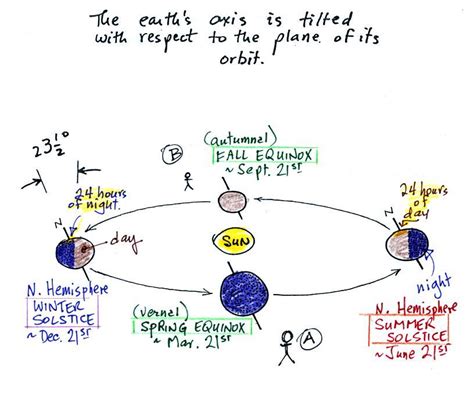 The earth's axis is tilted
with respect to the plane of its
orbit.
23 1/2°
24 hours
of night.
N
day
N. Hemisphere
WINTER
SOLSTICE
~ Dec. 21st
B
(autumnel)
FALL EQUINOX
~ Sept. 21st
SUN
(vernel)
SPRING EQUINOX
~ Mar. 21st
A
24 hours
of
day
N
night
N. Hemisphere
SUMMER
SOLSTICE
~ June 21st